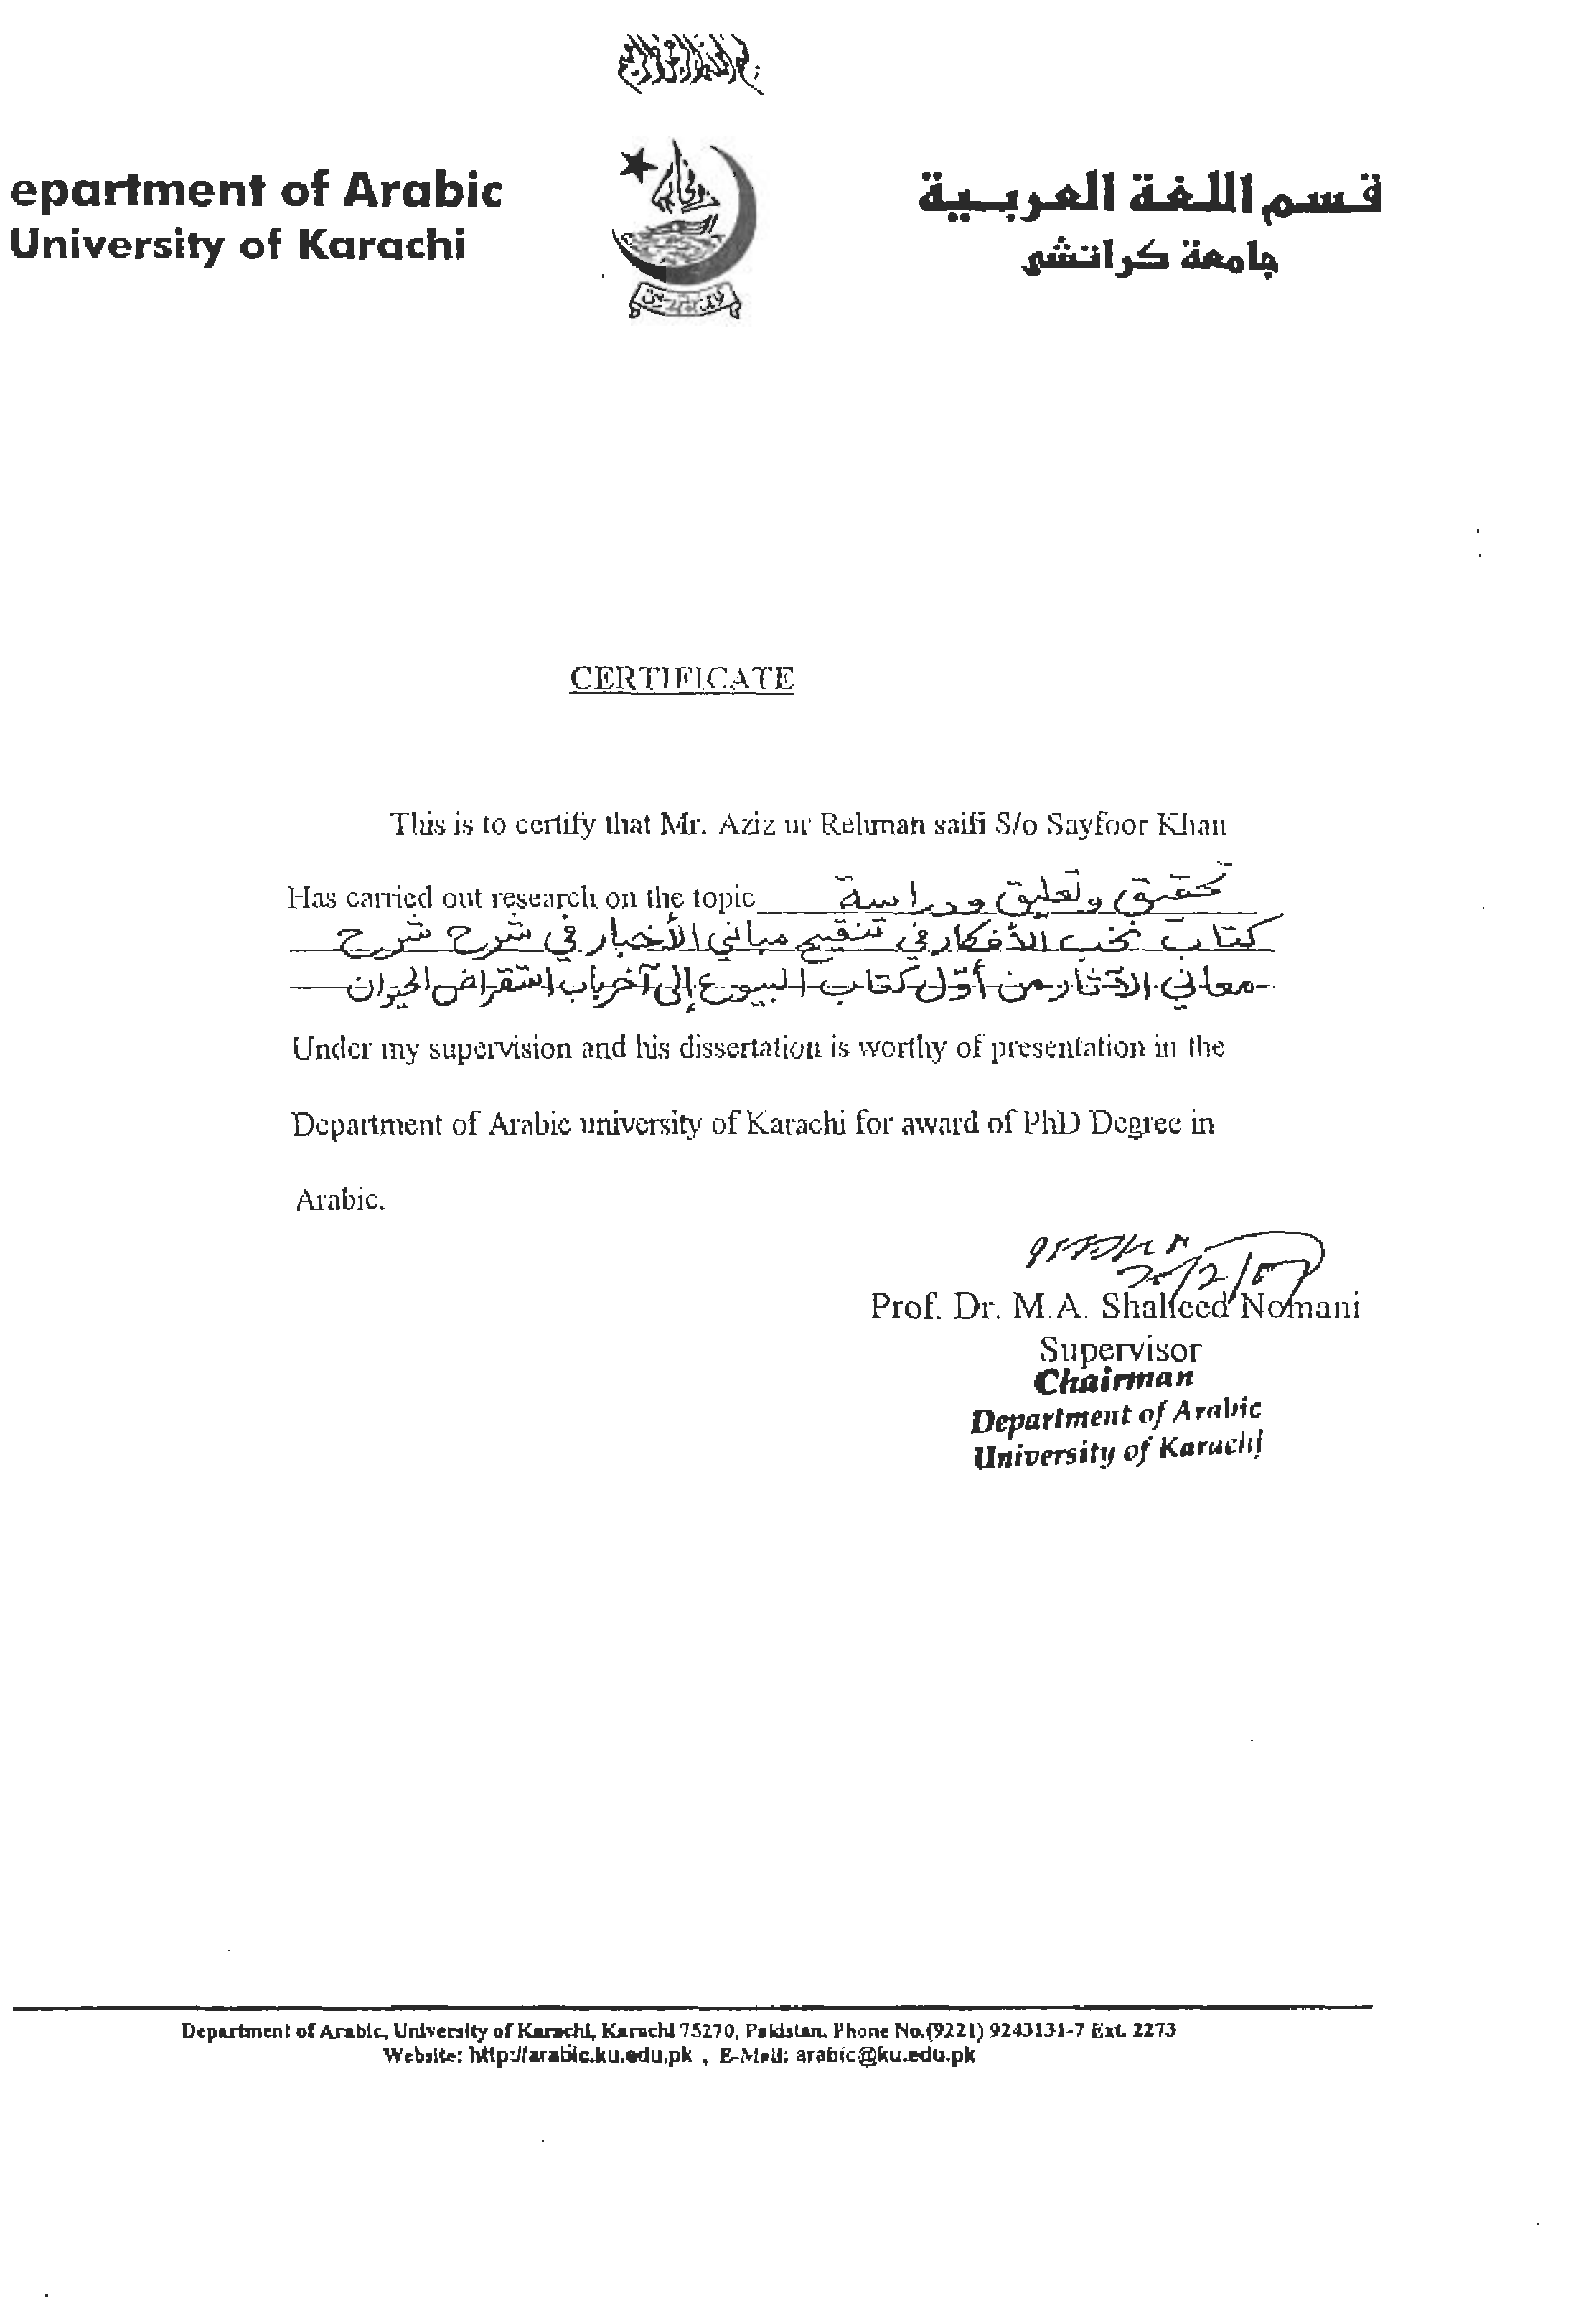 بسم الله الرحمن الرحيم
epartment of Arabic
University of Karachi
قسم اللغة العربية
جامعة كراتشى
CERTIFICATE
This is to certify that Mr. Aziz ur Rehman saifi S/o Sayfoor Khan
Has carried out research on the topic تحقيق وتعليق ودراسة
كتاب نخب الأفكار في تنقيح مباني الأخبار في شرح شرح
معاني الآثار من أوّل كتاب البيوع إلى آخر باب استقراض الحيوان
Under my supervision and his dissertation is worthy of presentation in the
Department of Arabic university of Karachi for award of PhD Degree in
Arabic.
Prof. Dr. M.A. Shaheed Nomani
Supervisor
Chairman
Department of Arabic
University of Karachi
Department of Arabic, University of Karachi, Karachi 75270, Pakistan. Phone No.(9221) 9243131-7 Ext. 2273
Website: http://arabic.ku.edu.pk , E-Mail: arabic@ku.edu.pk